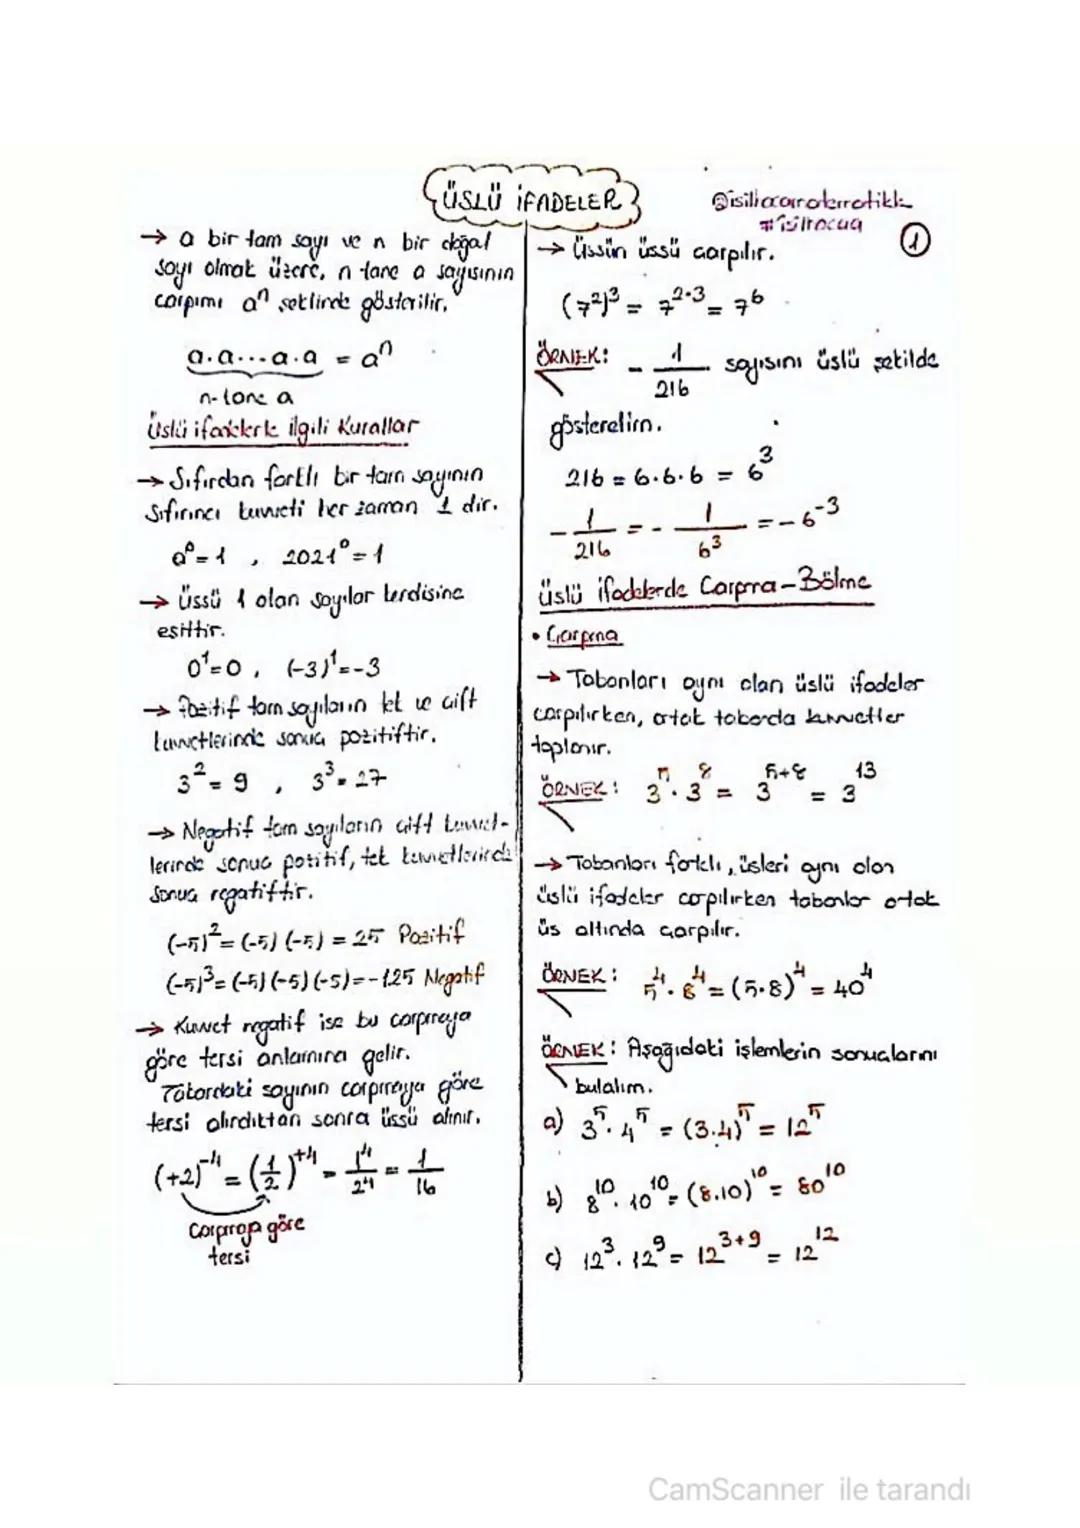 ÜSLÜ İFADELER
①
→ a bir tam sayı ve n bir doğal
sayı olmak üzere, n tane a sayısının
çarpımı aⁿ şeklinde gösterilir.
a.a...a.a = aⁿ
n-tane a
Üslü ifadelerle ilgili Kurallar
→ Sıfırdan farklı bir tam sayının
sıfırıncı kuvveti her zaman 1 dir.
a⁰=1 , 2021⁰=1
→ Üssü 1 olan sayılar kendisine
eşittir.
0¹=0 , (-3)¹=-3
→ Pozitif tam sayıların tek ve çift
kuvvetlerinde sonuç pozitiftir.
3²=9 , 3³=27
→ Negatif tam sayıların çift kuvvet-
lerinde sonuç pozitif, tek kuvvetlerinde
sonuç negatiftir.
(-5)²=(-5)(-5)=25 Pozitif
(-5)³=(-5)(-5)(-5)=-125 Negatif
→ Kuvvet negatif ise bu çarpmaya
göre tersi anlamına gelir.
Tabandaki sayının çarpmaya göre
tersi alındıktan sonra üssü alınır.
(+2)⁻⁴=(1/2)⁺⁴=1⁴/2⁴=1/16
Çarpmaya göre
tersi
→ Üssün üssü çarpılır.
(7²)³=7²·³=7⁶
ÖRNEK: -1/216 sayısını üslü şekilde
gösterelim.
216=6.6.6=6³
-1/216=-1/6³=-6⁻³
Üslü ifadelerde Çarpma-Bölme
• Çarpma
→ Tabanları aynı olan üslü ifadeler
çarpılırken, ortak tabanda kuvvetler
toplanır.
ÖRNEK: 3⁵.3⁸=3⁵⁺⁸=3¹³
→ Tabanları farklı, üsleri aynı olan
üslü ifadeler çarpılırken tabanlar ortak
üs altında çarpılır.
ÖRNEK: 5⁴.8⁴=(5.8)⁴=40⁴
ÖRNEK: Aşağıdaki işlemlerin sonuçlarını
bulalım.
a) 3⁵.4⁵=(3.4)⁵=12⁵
b) 8¹⁰.10¹⁰=(8.10)¹⁰=80¹⁰
c) 12³.12⁹=12³⁺⁹=12¹²
CamScanner ile tarandı